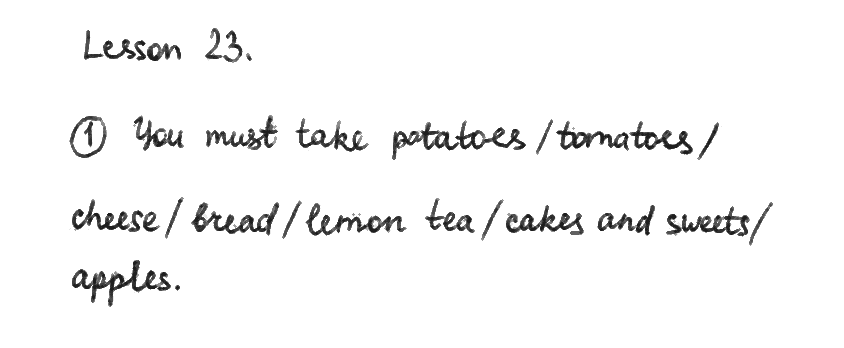 Lesson 23.
① You must take potatoes / tomatoes /
cheese / bread / lemon tea / cakes and sweets /
apples.